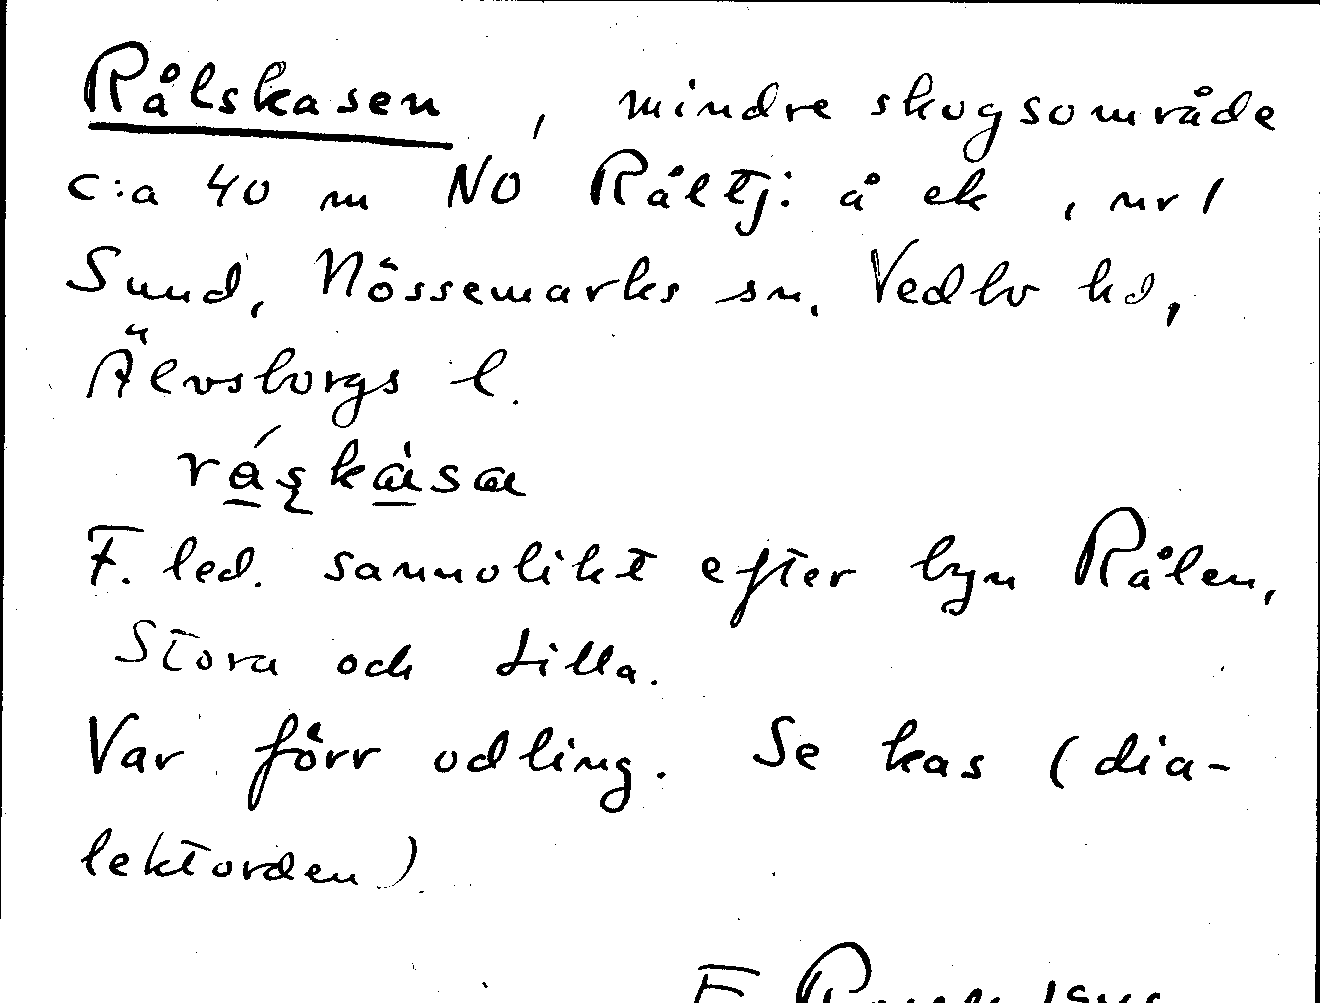 Rålskasen, mindre skogsområde
c:a 40 m NO Råltj: å ek, nr 1
Sund, Nössemarks sn. Vedbo hd,
Älvsborgs l.
F. led. sannolikt efter byn Rålen,
Stora och Lilla.
Var förr odling. Se kas (dia-
lektorden)
F.